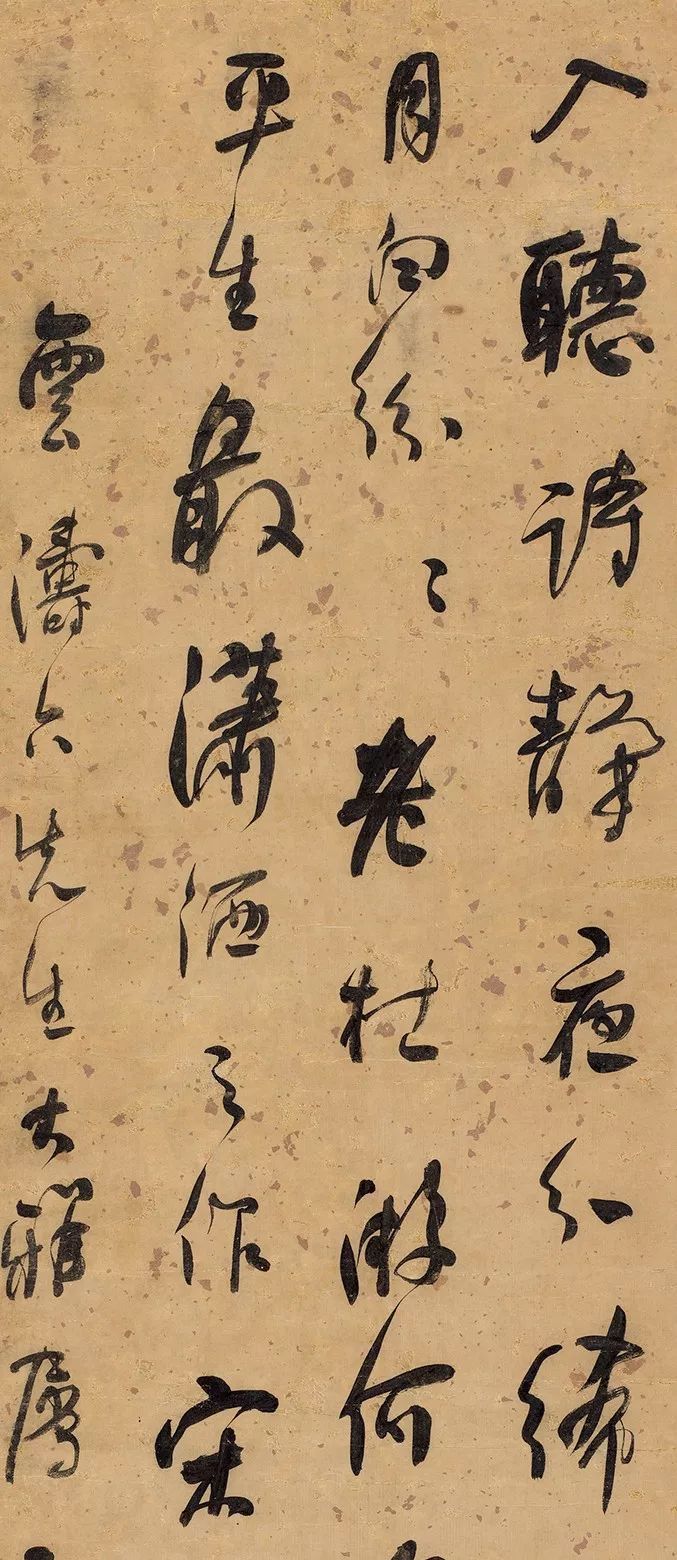 入聽詩靜夜分絺
月白紛〻老杜游何
平生最瀟洒之作宋
雲濤六先生大雅屬